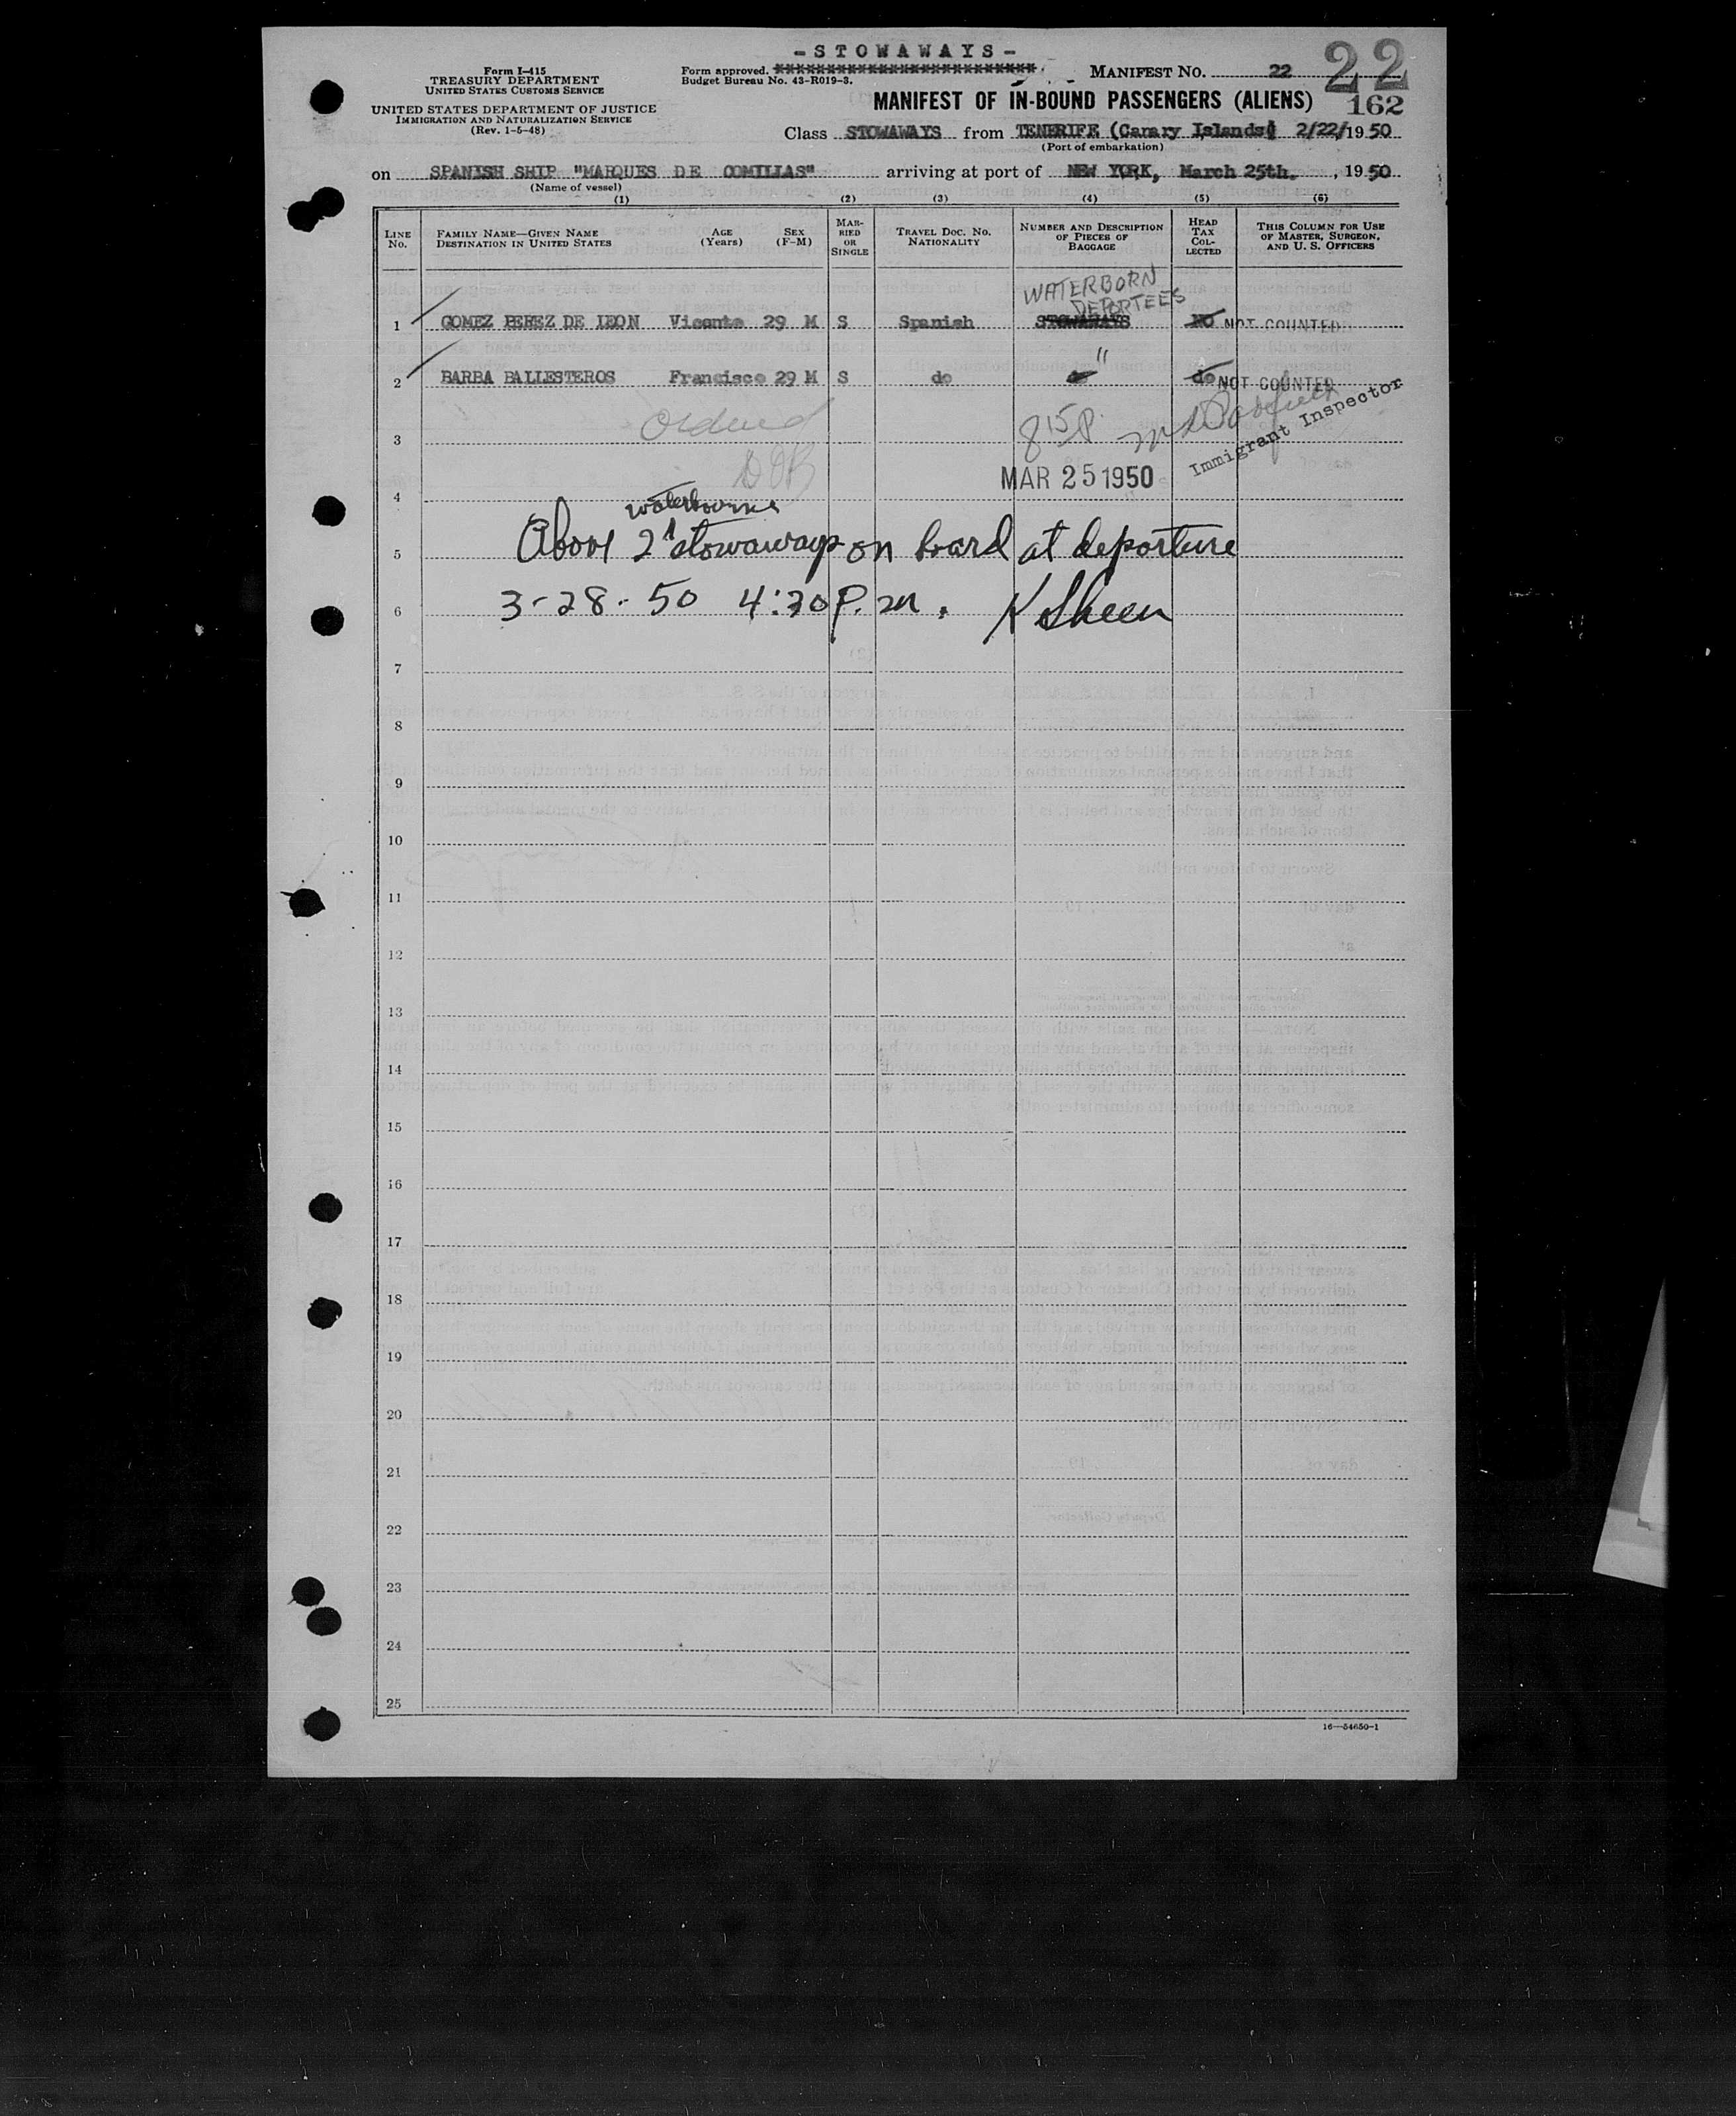 -STOWAWAYS-
Form I-415
TREASURY DEPARTMENT
UNITED STATES CUSTOMS SERVICE
UNITED STATES DEPARTMENT OF JUSTICE
IMMIGRATION AND NATURALIZATION SERVICE
(Rev. 1-5-48)
Form approved.
Budget Bureau No. 43-R019-3.
MANIFEST NO. 22
22
162
MANIFEST OF IN-BOUND PASSENGERS (ALIENS)
Class STOWAWAYS from TENERIFE (Canary Islands) 2/22/1950
(Port of embarkation)
on SPANISH SHIP "MARQUES DE COMILLAS" arriving at port of NEW YORK, March 25th. , 1950
(Name of vessel)
(1) (2) (3) (4) (5) (6)
LINE No.
FAMILY NAME—GIVEN NAME
DESTINATION IN UNITED STATES
AGE (Years)
SEX (F-M)
MARRIED OR SINGLE
TRAVEL DOC. NO. NATIONALITY
NUMBER AND DESCRIPTION OF PIECES OF BAGGAGE
HEAD TAX COLLECTED
THIS COLUMN FOR USE OF MASTER, SURGEON, AND U. S. OFFICERS
WATERBORN
DEPORTEES
1 GOMEZ PEREZ DE LEON Vicente 29 M S Spanish STOWAWAYS NO NOT COUNTED
"
2 BARBA BALLESTEROS Francisco 29 M S do do do NOT COUNTED
Immigrant Inspector
3
815P.
MAR 25 1950
4
waterbourne
5 Above 2 stowaways on board at departure
6 3-28-50 4:30 P.m. K Sheen
7
8
9
10
11
12
13
14
15
16
17
18
19
20
21
22
23
24
25
16—54650-1